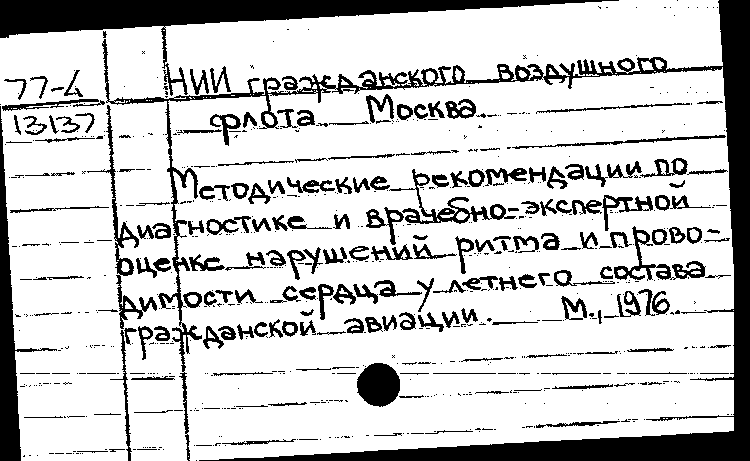 77-4
13137
НИИ гражданского воздушного
флота. Москва.
Методические рекомендации по
диагностике и врачебно-экспертной
оценке нарушений ритма и прово-
димости сердца у летнего состава
гражданской авиации. М., 1976.